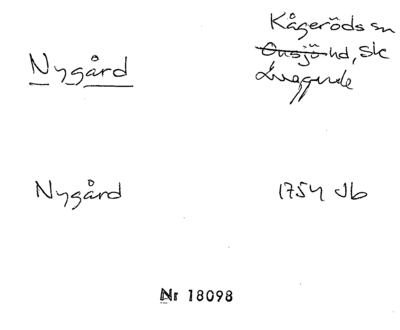 Kågeröds sn
Nygård
Onsjö hd, Sk
Luggude
Nygård
1754 Jb
Nr 18098